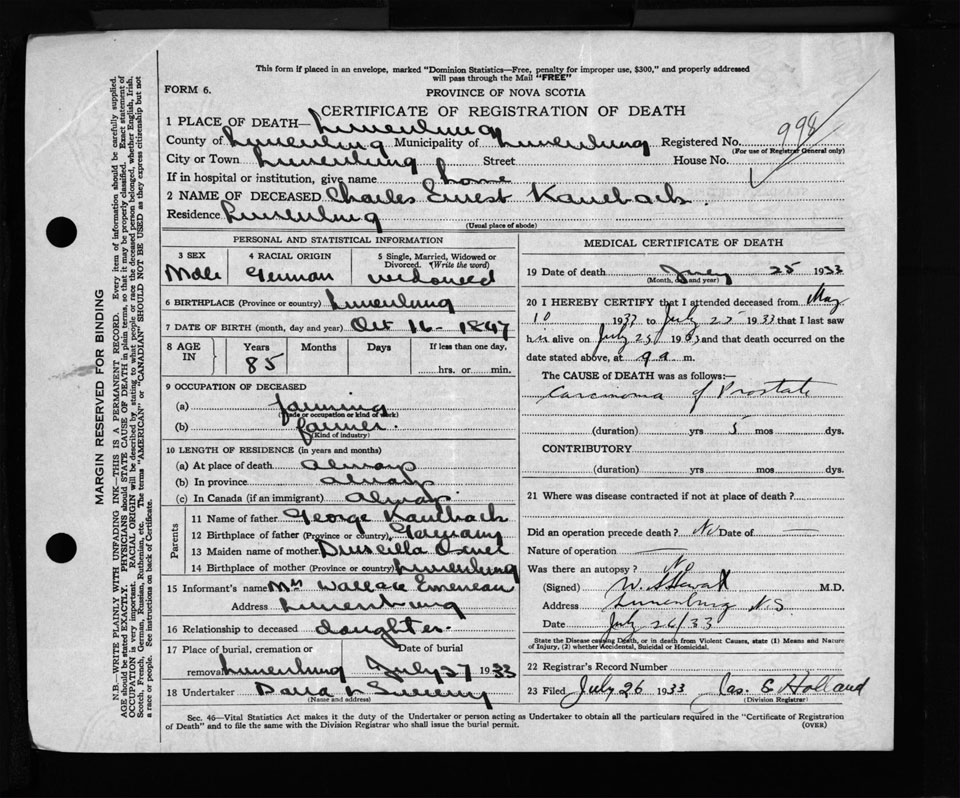 This form if placed in an envelope, marked "Dominion Statistics—Free, penalty for improper use, $300," and properly addressed
will pass through the Mail "FREE"
FORM 6.
PROVINCE OF NOVA SCOTIA
CERTIFICATE OF REGISTRATION OF DEATH
998
1 PLACE OF DEATH— Lunenburg
County of Lunenburg Municipality of Lunenburg Registered No.
(For use of Registrar General only)
City or Town Lunenburg Street House No.
If in hospital or institution, give name home
2 NAME OF DECEASED Charles Ernest Kaulback.
Residence Lunenburg
(Usual place of abode)
PERSONAL AND STATISTICAL INFORMATION
3 SEX 4 RACIAL ORIGIN 5 Single, Married, Widowed or
Divorced. (Write the word)
Male German widowed
6 BIRTHPLACE (Province or country) Lunenburg
7 DATE OF BIRTH (month, day and year) Oct 16-1847
8 AGE IN Years Months Days If less than one day,
85 hrs. or min.
9 OCCUPATION OF DECEASED
(a) farming
(Trade or occupation or kind of work)
(b) farmer.
(Kind of industry)
10 LENGTH OF RESIDENCE (in years and months)
(a) At place of death always
(b) In province always
(c) In Canada (if an immigrant) always
Parents
11 Name of father George Kaulback
12 Birthplace of father (Province or country) Germany
13 Maiden name of mother Druscilla
14 Birthplace of mother (Province or country) Lunenburg
15 Informant's name Mrs Wallace
Address Lunenburg
16 Relationship to deceased daughter.
17 Place of burial, cremation or Date of burial
removal Lunenburg July 27 1933
18 Undertaker
(Name and address)
MEDICAL CERTIFICATE OF DEATH
19 Date of death July 25 1933
(Month, day and year)
20 I HEREBY CERTIFY that I attended deceased from May
10 1933 to July 25 1933 that I last saw
him alive on July 25 1933 and that death occurred on the
date stated above, at 9 a. m.
The CAUSE of DEATH was as follows:—
Carcinoma of Prostate
(duration) yrs 5 mos dys.
CONTRIBUTORY
(duration) yrs mos dys.
21 Where was disease contracted if not at place of death?
Did an operation precede death? No Date of —
Nature of operation —
Was there an autopsy? No
(Signed) M.D.
Address Lunenburg N.S.
Date July 26/33
State the Disease causing Death, or in death from Violent Causes, state (1) Means and Nature
of Injury, (2) whether Accidental, Suicidal or Homicidal.
22 Registrar's Record Number
23 Filed July 26 1933 Jas. E Holland
(Division Registrar)
Sec. 46—Vital Statistics Act makes it the duty of the Undertaker or person acting as Undertaker to obtain all the particulars required in the "Certificate of Registration
of Death" and to file the same with the Division Registrar who shall issue the burial permit.
(OVER)
MARGIN RESERVED FOR BINDING
N.B.—WRITE PLAINLY WITH UNFADING INK—THIS IS A PERMANENT RECORD. Every item of information should be carefully supplied.
AGE should be stated EXACTLY. PHYSICIANS should STATE CAUSE OF DEATH in plain terms, so that it may be properly classified. Exact statement of
OCCUPATION is very important. RACIAL ORIGIN will be described by stating to what people or race the deceased person belonged, whether English, Irish,
Scotch, French, German, Russian, Ruthenian, etc. The terms "AMERICAN" or "CANADIAN" SHOULD NOT BE USED as they express citizenship but not
a race or people. See instructions on back of Certificate.